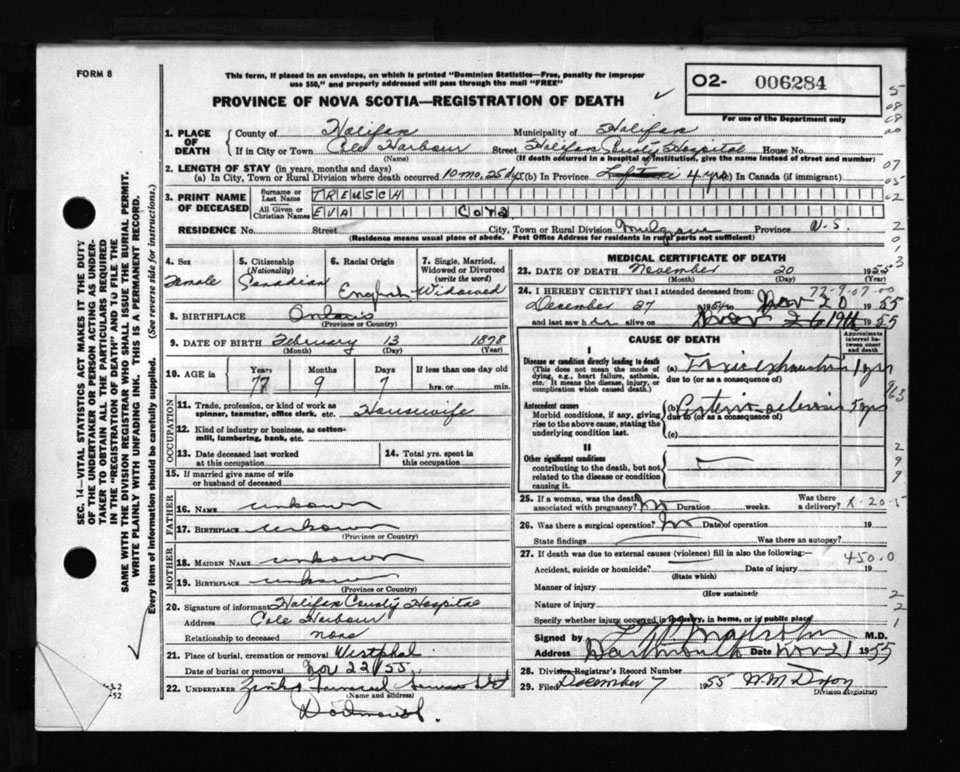 FORM 8
This form, if placed in an envelope, on which is printed "Dominion Statistics—Free, penalty for improper
use $50," and properly addressed will pass through the mail "FREE"
O2- 006284
For use of the Department only
PROVINCE OF NOVA SCOTIA—REGISTRATION OF DEATH
1. PLACE OF DEATH
County of Halifax Municipality of Halifax
If in City or Town Cole Harbour Street Halifax County Hospital House No.
(Name) (If death occurred in a hospital or institution, give the name instead of street and number)
2. LENGTH OF STAY (in years, months and days)
(a) In City, Town or Rural Division where death occurred 10 mo. 25 dys (b) In Province 4 yrs (c) In Canada (if immigrant)
3. PRINT NAME OF DECEASED
Surname or Last Name TREUSCH
All Given or Christian Names EVA Cora
RESIDENCE No. Street City, Town or Rural Division Mulgrave Province N.S.
(Residence means usual place of abode. Post Office Address for residents in rural parts not sufficient)
4. Sex Female
5. Citizenship (Nationality) Canadian
6. Racial Origin English
7. Single, Married, Widowed or Divorced (write the word) Widowed
8. BIRTHPLACE Ontario
(Province or Country)
9. DATE OF BIRTH February 13 1878
(Month) (Day) (Year)
10. AGE in Years 77 Months 9 Days 7 If less than one day old
hrs. or min.
OCCUPATION
11. Trade, profession, or kind of work as spinner, teamster, office clerk, etc. Housewife
12. Kind of industry or business, as cotton-mill, lumbering, bank, etc.
13. Date deceased last worked at this occupation
14. Total yrs. spent in this occupation
15. If married give name of wife or husband of deceased
FATHER
16. NAME unknown
17. BIRTHPLACE unknown
(Province or Country)
MOTHER
18. MAIDEN NAME unknown
19. BIRTHPLACE unknown
(Province or Country)
20. Signature of informant Halifax County Hospital
Address Cole Harbour
Relationship to deceased none
21. Place of burial, cremation or removal Westphal
Date of burial or removal Nov 22/55
22. UNDERTAKER Funeral
(Name and address)
Dartmouth.
MEDICAL CERTIFICATE OF DEATH
23. DATE OF DEATH November 20 1955
(Month) (Day) (Year)
24. I HEREBY CERTIFY that I attended deceased from:
December 27 1954 to Nov 20 1955
and last saw her alive on Nov 19th 1955
CAUSE OF DEATH
Approximate interval between onset and death
I
Disease or condition directly leading to death
(This does not mean the mode of dying, e.g., heart failure, asthenia, etc. It means the disease, injury, or complication which caused death.)
(a) Toxic exhaustion 1 yr
due to (or as a consequence of)
Antecedent causes
Morbid conditions, if any, giving rise to the above cause, stating the underlying condition last.
(b) 5 yrs
due to (or as a consequence of)
(c)
II
Other significant conditions
contributing to the death, but not related to the disease or condition causing it.
25. If a woman, was the death associated with pregnancy? No Duration weeks. Was there a delivery?
26. Was there a surgical operation? No Date of operation 19
State findings Was there an autopsy?
27. If death was due to external causes (violence) fill in also the following:—
450.0
Accident, suicide or homicide? Date of injury 19
(State which)
Manner of injury
(How sustained)
Nature of injury
Specify whether injury occurred in industry, in home, or in public place
Signed by M.D.
Address Dartmouth Date Nov 21 1955
28. Division Registrar's Record Number
29. Filed December 7 1955 W M Dixon
Division Registrar)
SEC. 14—VITAL STATISTICS ACT MAKES IT THE DUTY
OF THE UNDERTAKER OR PERSON ACTING AS UNDER-
TAKER TO OBTAIN ALL THE PARTICULARS REQUIRED
IN THE "REGISTRATION OF DEATH" AND TO FILE THE
SAME WITH THE DIVISION REGISTRAR WHO SHALL ISSUE THE BURIAL PERMIT.
WRITE PLAINLY WITH UNFADING INK. THIS IS A PERMANENT RECORD.
Every item of information should be carefully supplied. (See reverse side for instructions.)